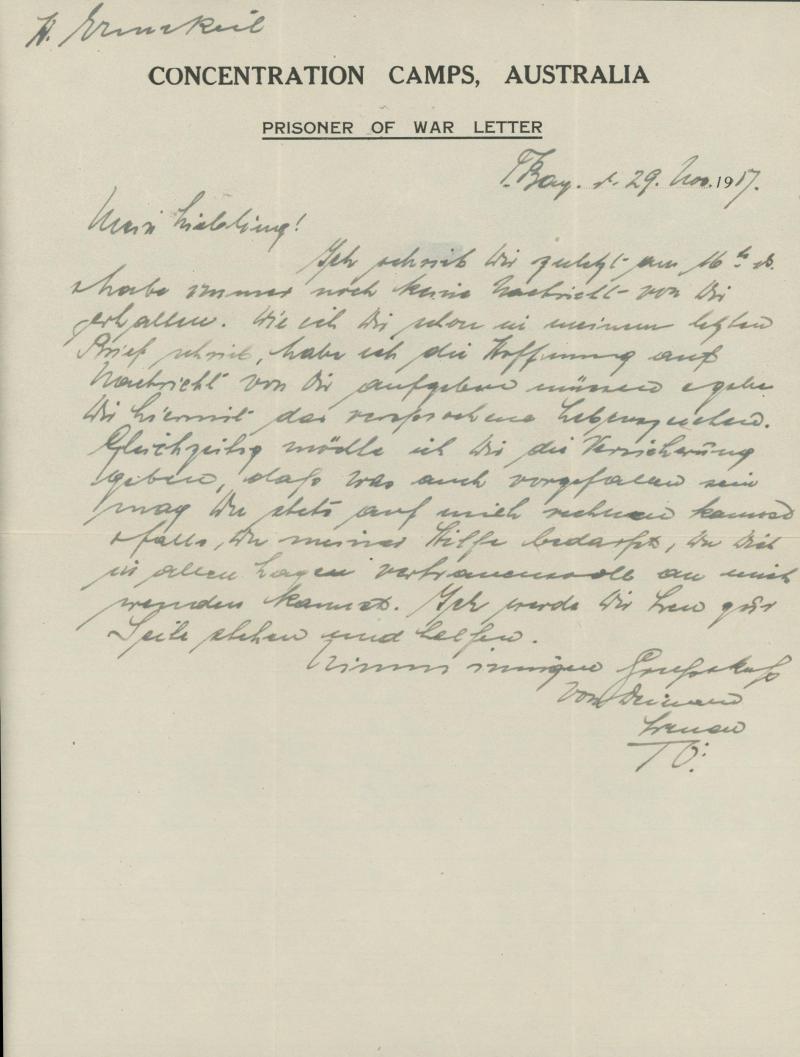 H.
CONCENTRATION CAMPS, AUSTRALIA
PRISONER OF WAR LETTER
T. Bay. d. 29. Nov. 1917.
Mein Liebling!
Ich schrieb Dir zuletzt am 16ten ds.
& habe immer noch keine Nachricht von Dir
erhalten. Wie ich Dir schon in meinem letzten
Brief schrieb, habe ich die Hoffnung auf
Nachricht von Dir aufgeben müssen & gebe
Dir hiermit das versprochene Lebenszeichen.
Gleichzeitig möchte ich Dir die Versicherung
geben, dass was auch vorgefallen sein
mag Du stets auf mich rechnen kannst
& falls Du meiner Hilfe bedarfst, Du Dich
in allen Lagen vertrauensvoll an mich
wenden kannst. Ich werde Dir treu zur
Seite stehen und helfen.
Nimm innigen Gruss & Kuss
von Deinem
treuen